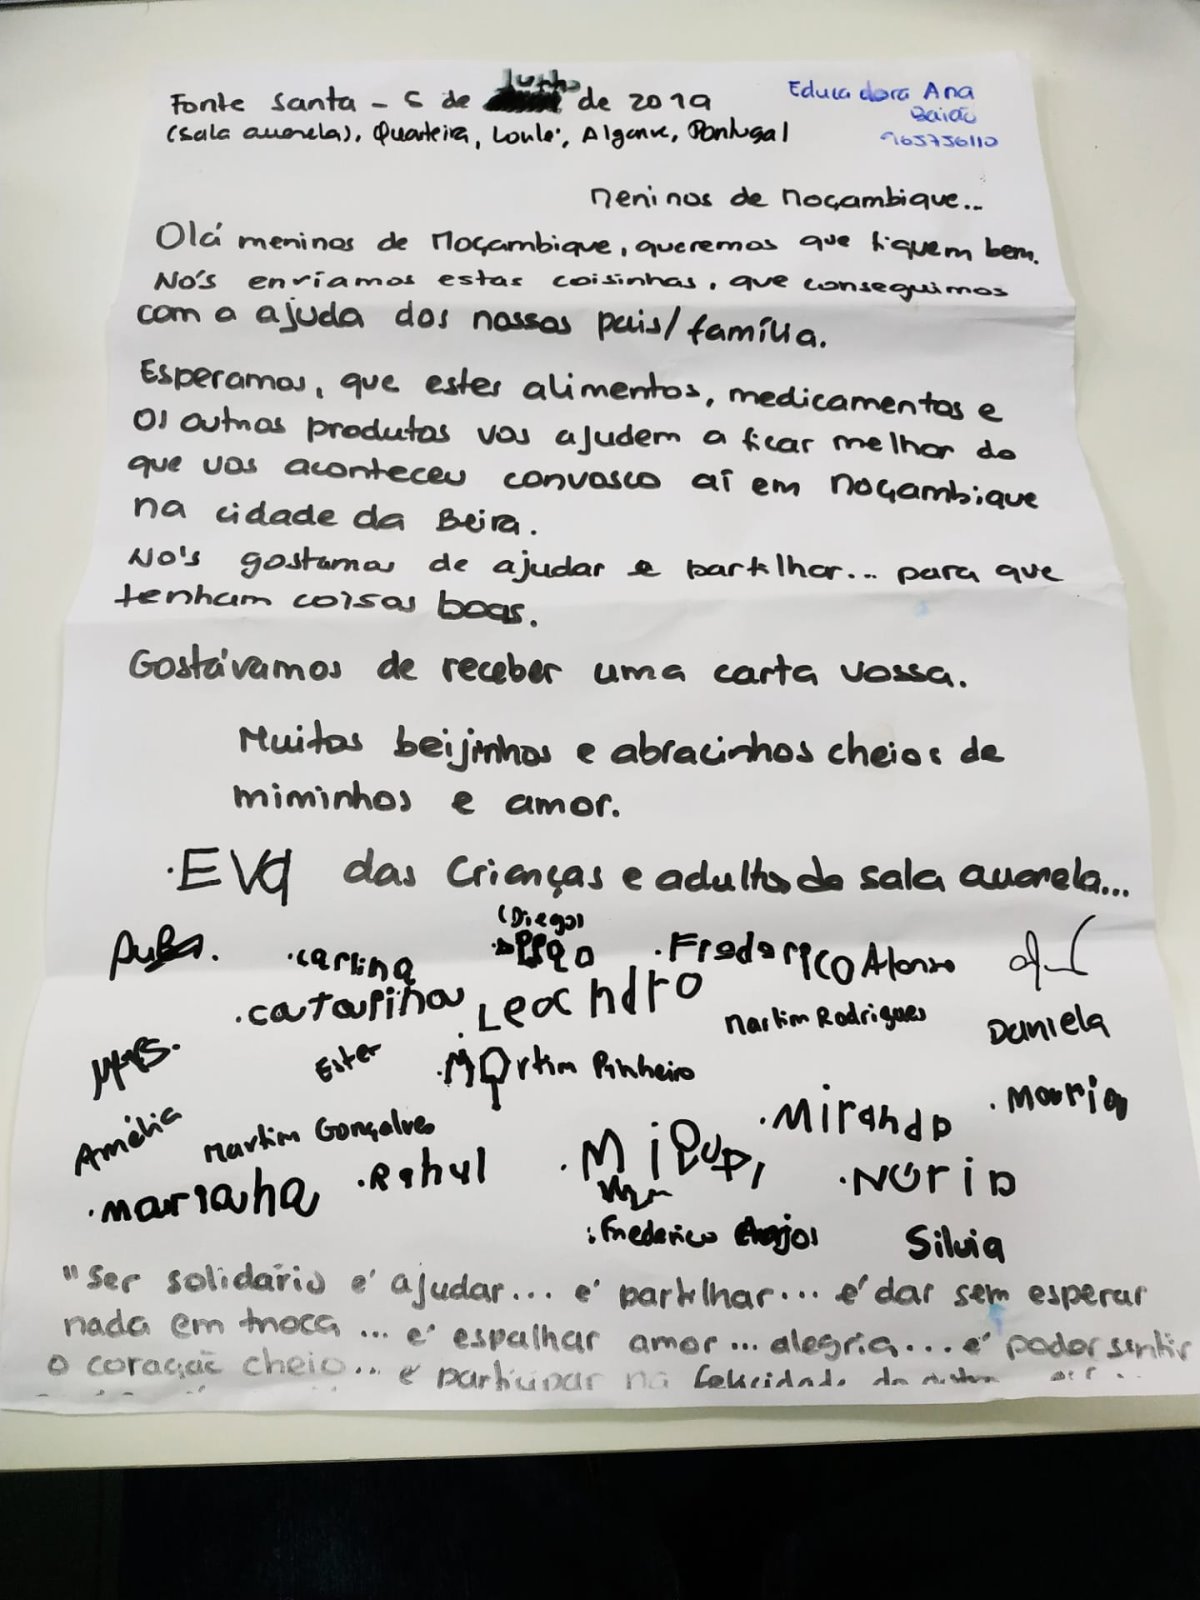 Fonte Santa - 5 de Junho de 2019
(sala auarela), Quarteira, Loulé, Algarve, Portugal
Educadora Ana
Baião
965756110
Meninos de Moçambique...
Olá meninos de Moçambique, queremos que fiquem bem.
Nós enviamos estas coisinhas, que conseguimos
com a ajuda dos nossos pais/família.
Esperamos, que estes alimentos, medicamentos e
os outros produtos vos ajudem a ficar melhor do
que vos aconteceu convosco aí em Moçambique
na cidade da Beira.
Nós gostamos de ajudar e partilhar... para que
tenham coisas boas.
Gostávamos de receber uma carta vossa.
Muitos beijinhos e abracinhos cheios de
miminhos e amor.
. Eva das Crianças e adultos da sala auarela...
(Diego)
. Carlina . Frederico Afonso
. Catarina . Leandro Martim Rodrigues Daniela
Ester . Martim Pinheiro
Amélia Martim Gonçalves . Miranda . Maria
. Mariana . Rahul . Núria
: Frederico Silvia
"Ser solidário é ajudar... é partilhar... é dar sem esperar
nada em troca... é espalhar amor... alegria... é poder sentir
o coração cheio... é participar na felicidade do